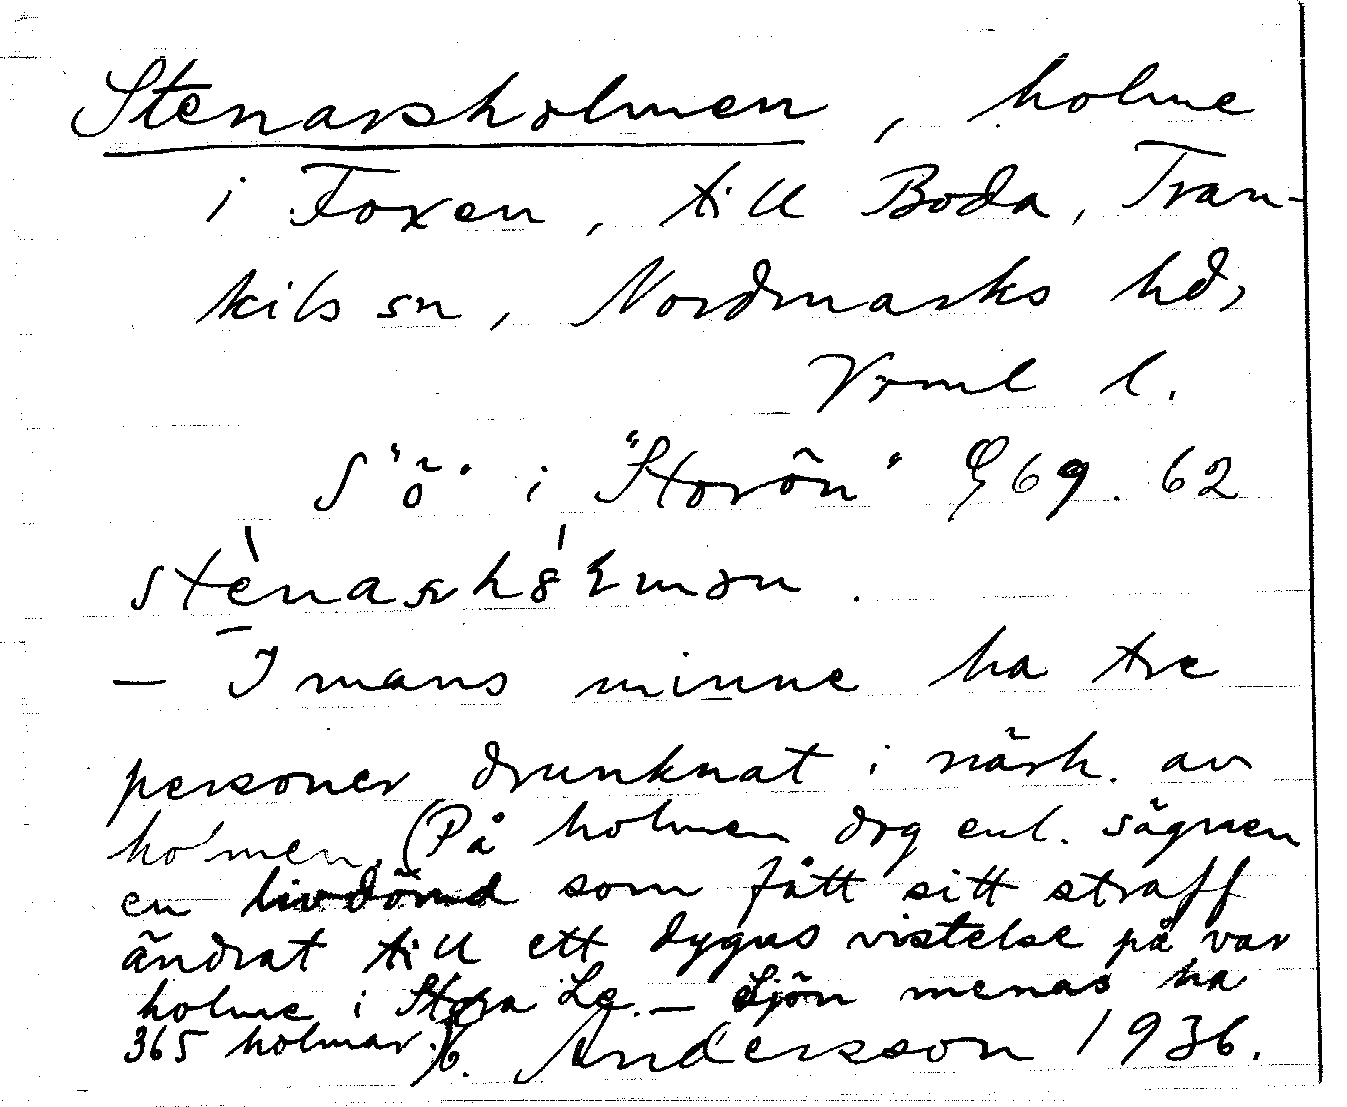 Stenarsholmen, holme
i Foxen, till Boda, Tran-
kils sn, Nordmarks hd,
Vrml l.
S "ö" i "Storön" 69. 62
- I mans minne ha tre
personer drunknat i närh. av
holmen. (På holmen dog enl. sägnen
en livdömd som fått sitt straff
ändrat till ett dygns vistelse på var
holme i Stora Le. — Sjön menas ha
365 holmar.)
Andersson 1936.